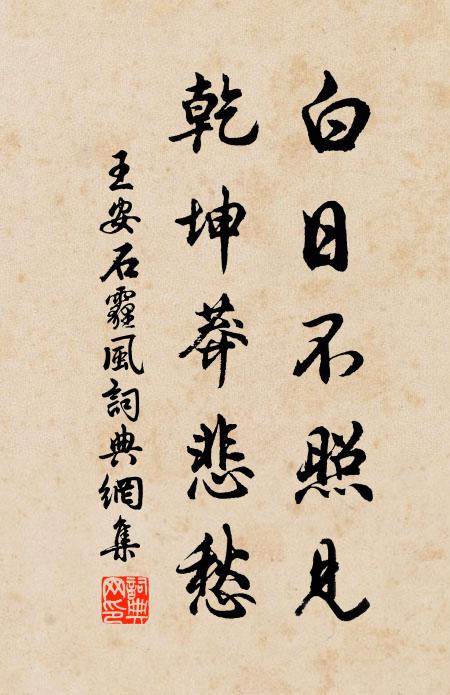 白日不照見
乾坤莽悲愁
王安石霾風詞典網集
詞典網印